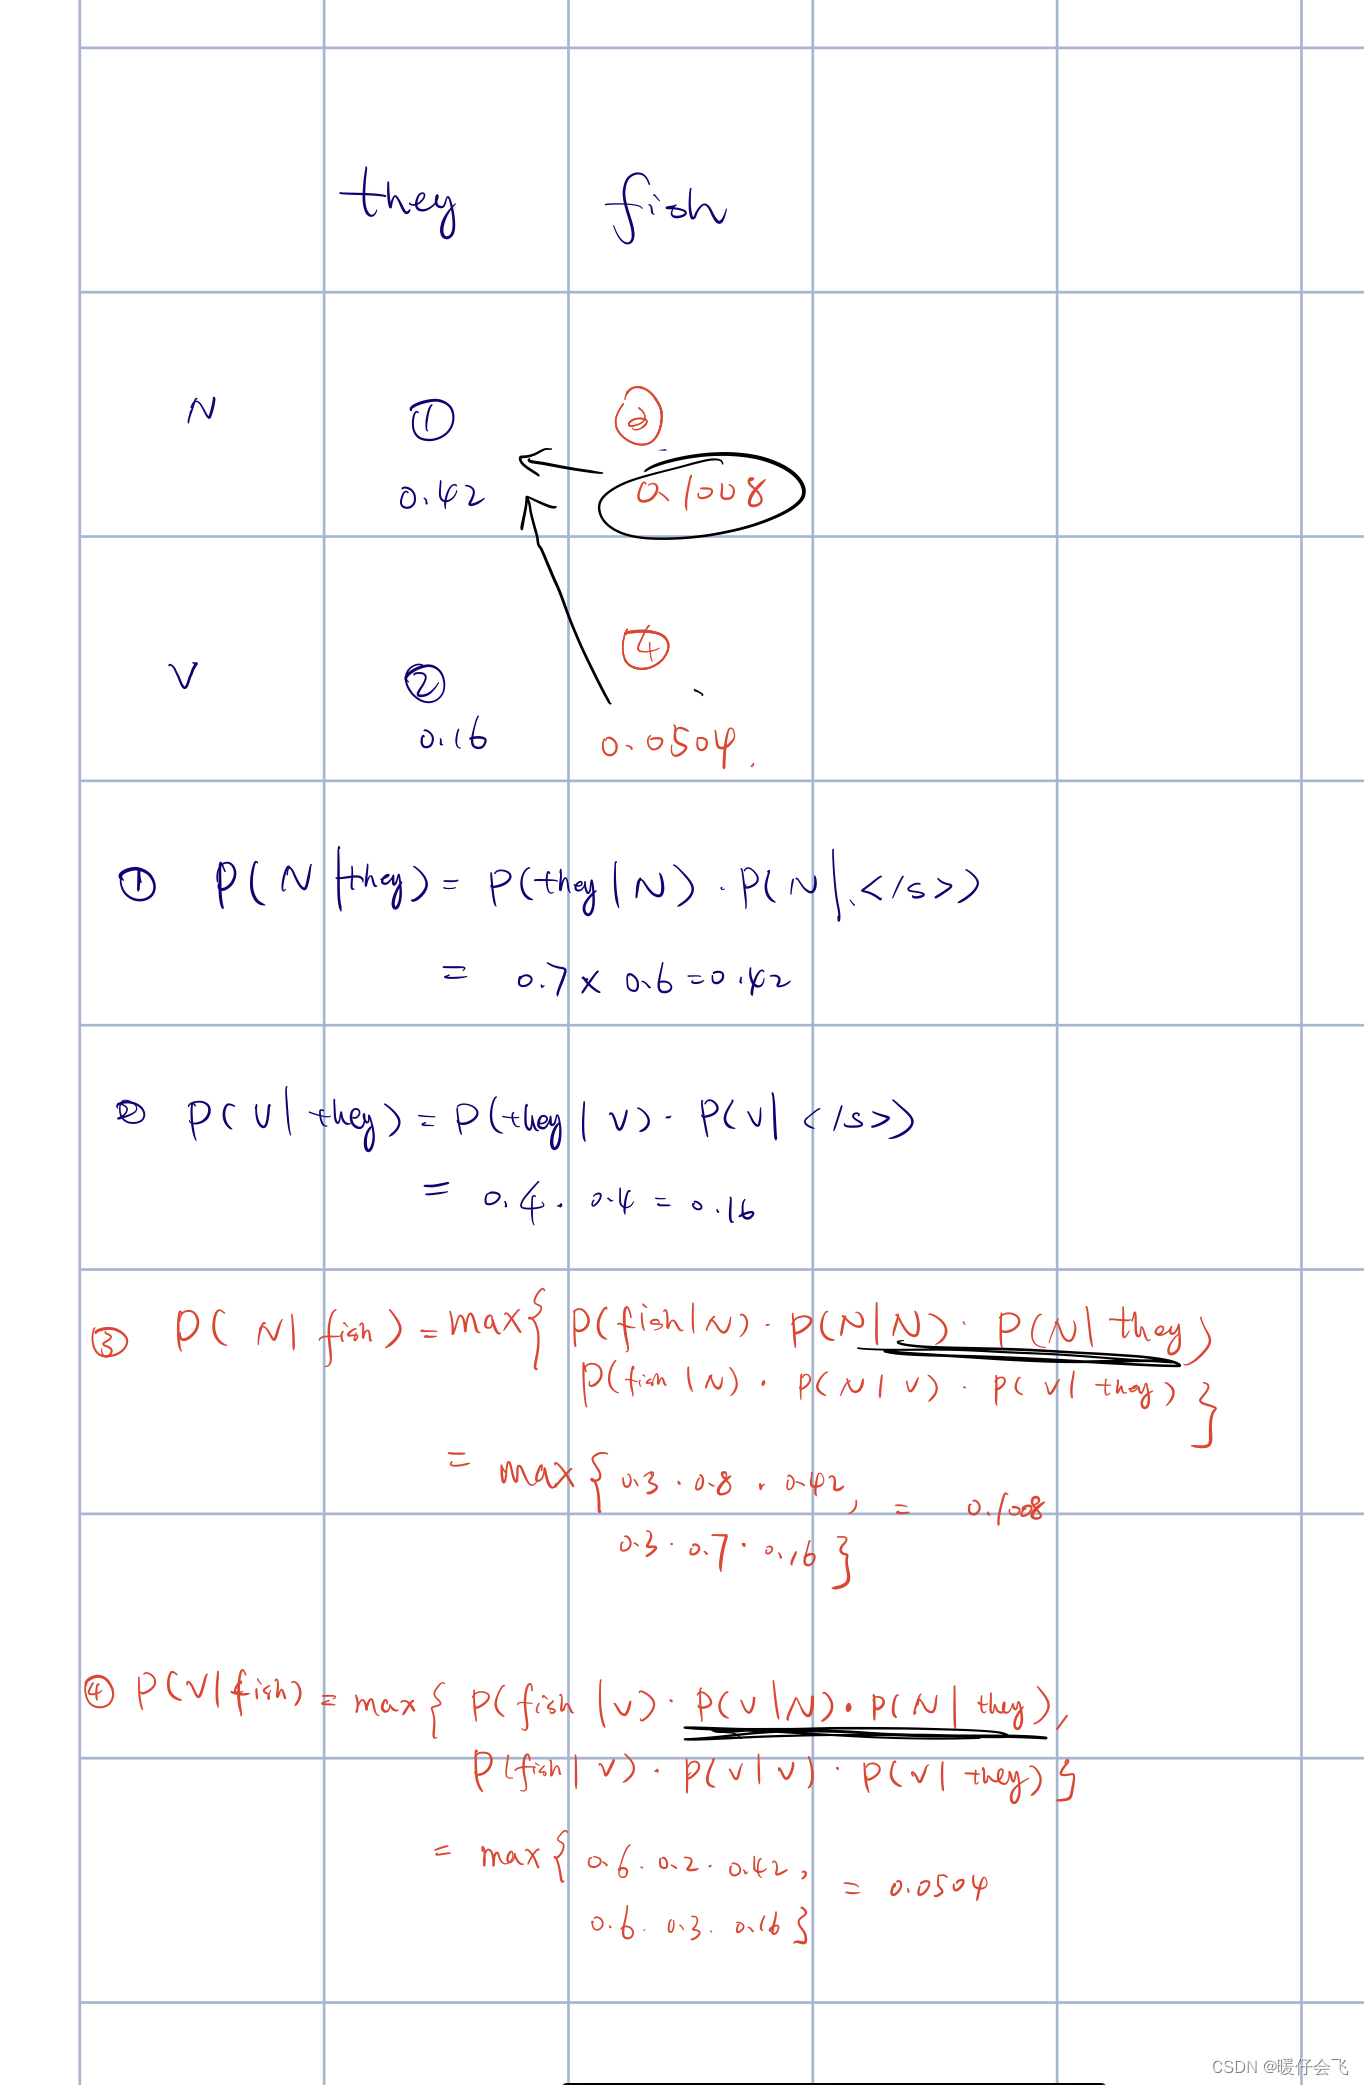 they fish
N ① ③
0.42 0.1008
V ② ④
0.16 0.0504.
① P(N|they) = P(they|N) · P(N|</s>)
= 0.7 × 0.6 = 0.42
② P(V|they) = P(they|V) · P(V|</s>)
= 0.4 · 0.4 = 0.16
③ P(N|fish) = max{ P(fish|N) · P(N|N) · P(N|they)
P(fish|N) · P(N|V) · P(V|they) }
= max{ 0.3 · 0.8 · 0.42, = 0.1008
0.3 · 0.7 · 0.16 }
④ P(V|fish) = max{ P(fish|V) · P(V|N) · P(N|they),
P(fish|V) · P(V|V) · P(V|they) }
= max{ 0.6 · 0.2 · 0.42, = 0.0504
0.6 · 0.3 · 0.16 }
CSDN @暖仔会飞